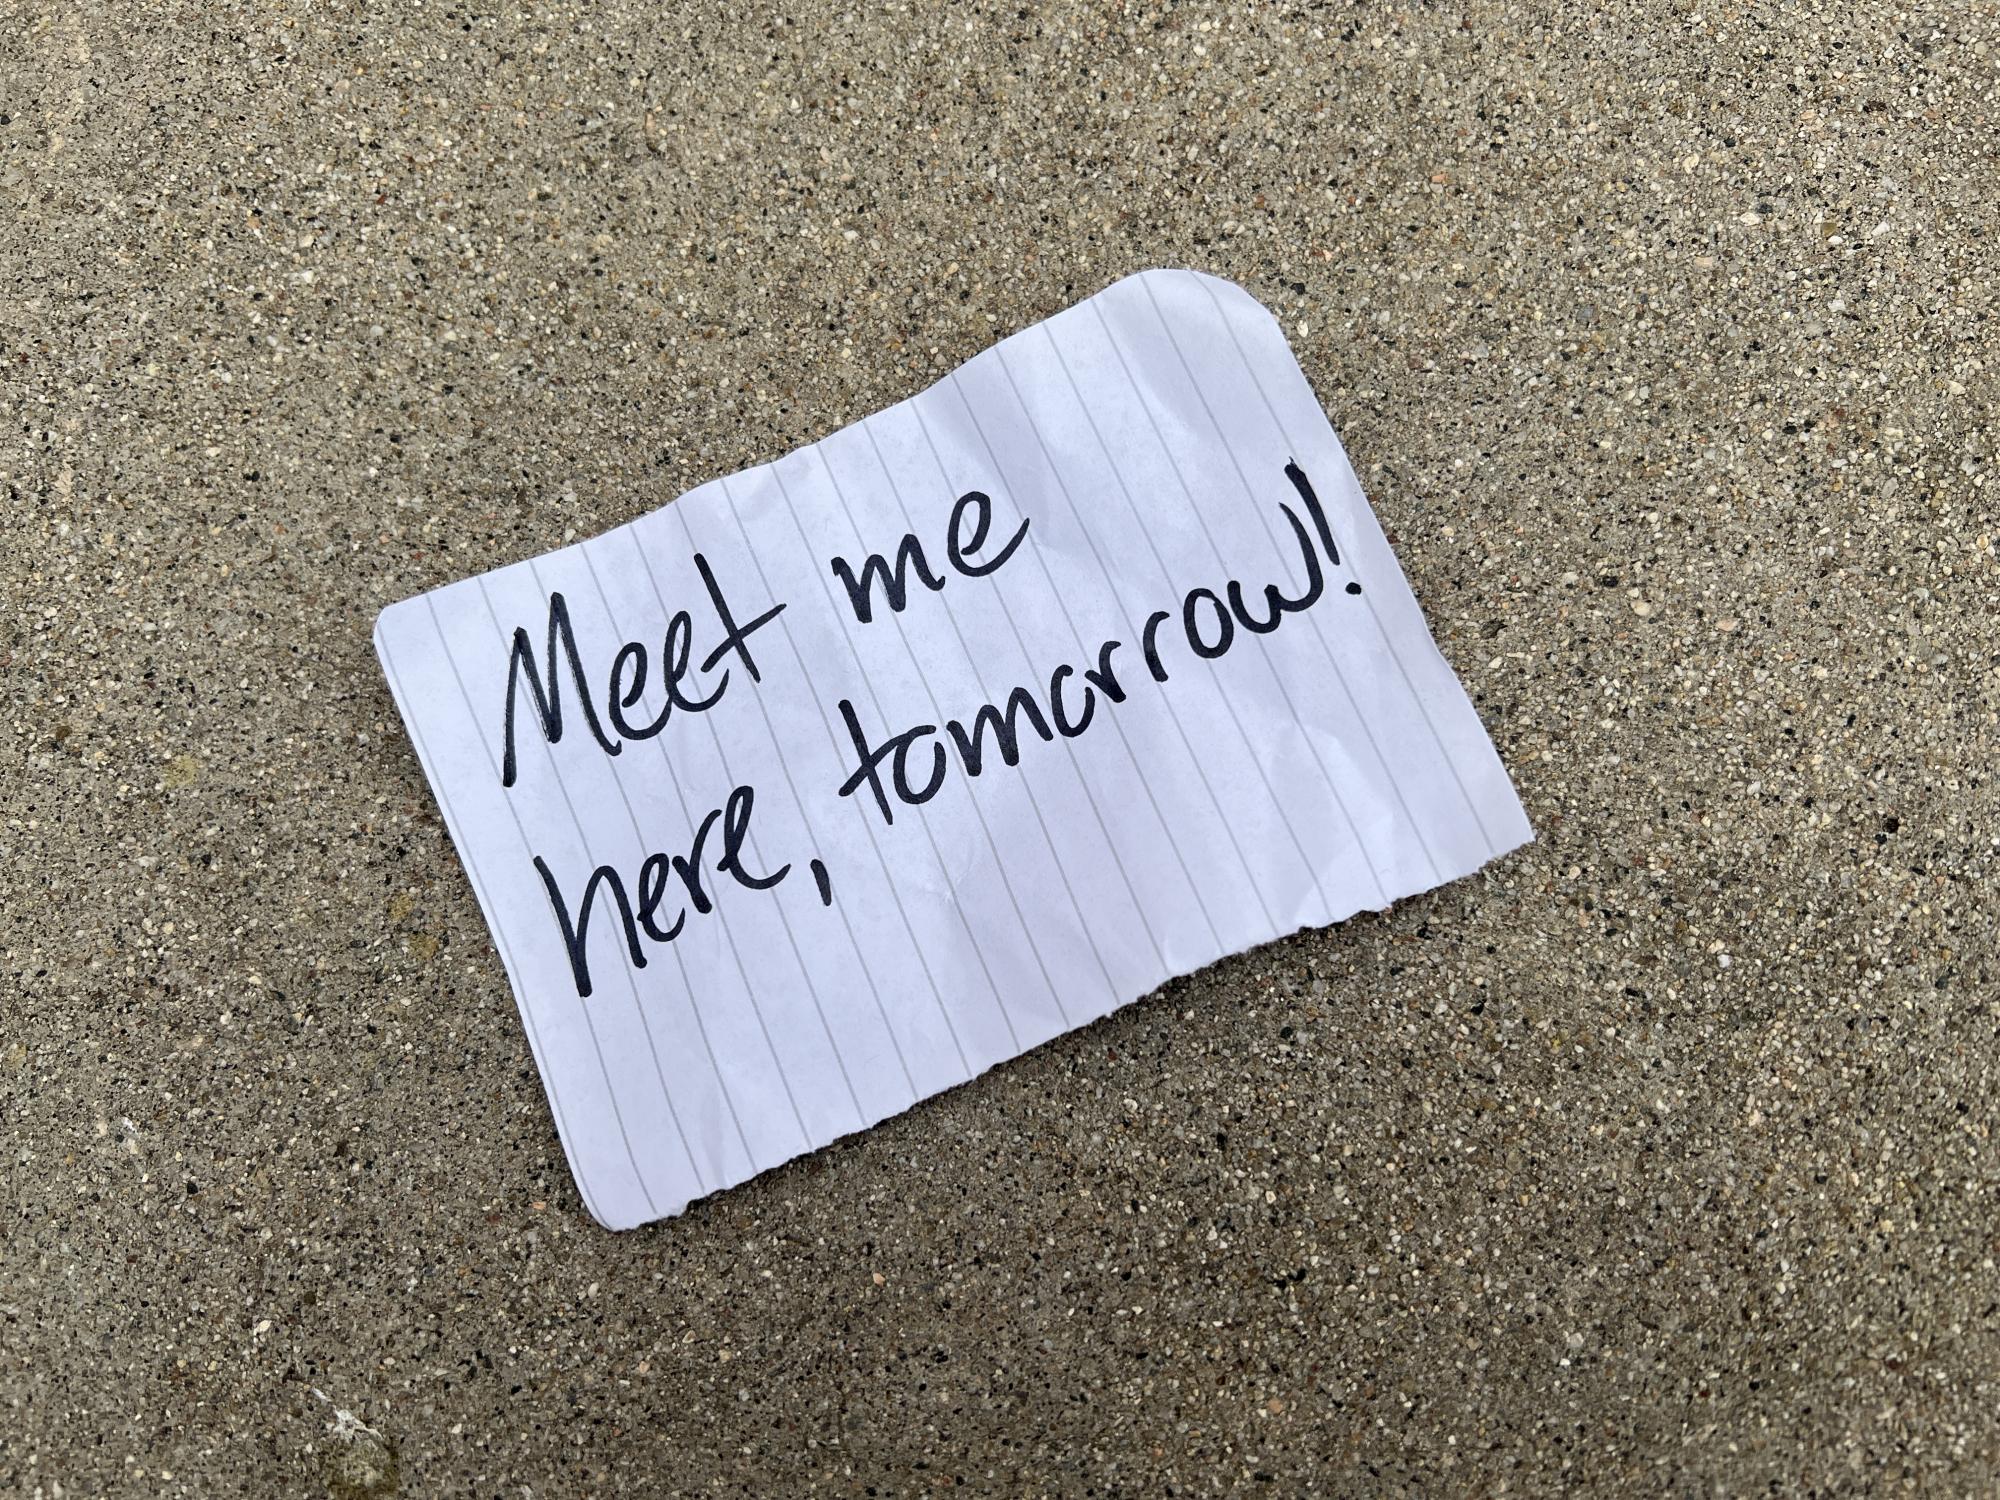 Meet me
here, tomorrow!